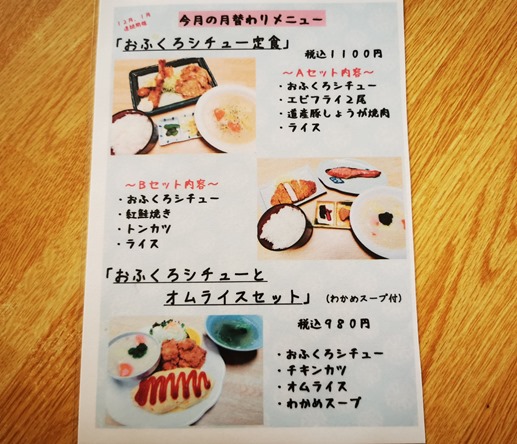 12月、1月
連続開催
今月の月替わりメニュー
「おふくろシチュー定食」
税込1100円
～Aセット内容～
・おふくろシチュー
・エビフライ2尾
・道産豚しょうが焼肉
・ライス
～Bセット内容～
・おふくろシチュー
・紅鮭焼き
・トンカツ
・ライス
「おふくろシチューと
オムライスセット」（わかめスープ付）
税込980円
・おふくろシチュー
・チキンカツ
・オムライス
・わかめスープ